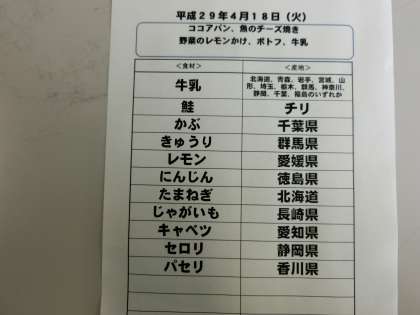 平成29年4月18日（火）
ココアパン、魚のチーズ焼き
野菜のレモンかけ、ポトフ、牛乳
＜食材＞ ＜産地＞
牛乳 北海道、青森、岩手、宮城、山
形、埼玉、栃木、群馬、神奈川、
静岡、千葉、福島のいずれか
鮭 チリ
かぶ 千葉県
きゅうり 群馬県
レモン 愛媛県
にんじん 徳島県
たまねぎ 北海道
じゃがいも 長崎県
キャベツ 愛知県
セロリ 静岡県
パセリ 香川県